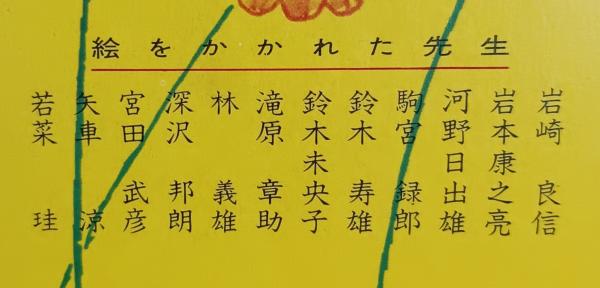 絵をかかれた先生
岩崎 良信
岩本康之亮
河野日出雄
駒宮 録郎
鈴木 寿雄
鈴木未央子
滝原 章助
林 義雄
深沢 邦朗
宮田 武彦
矢車 涼
若菜 珪